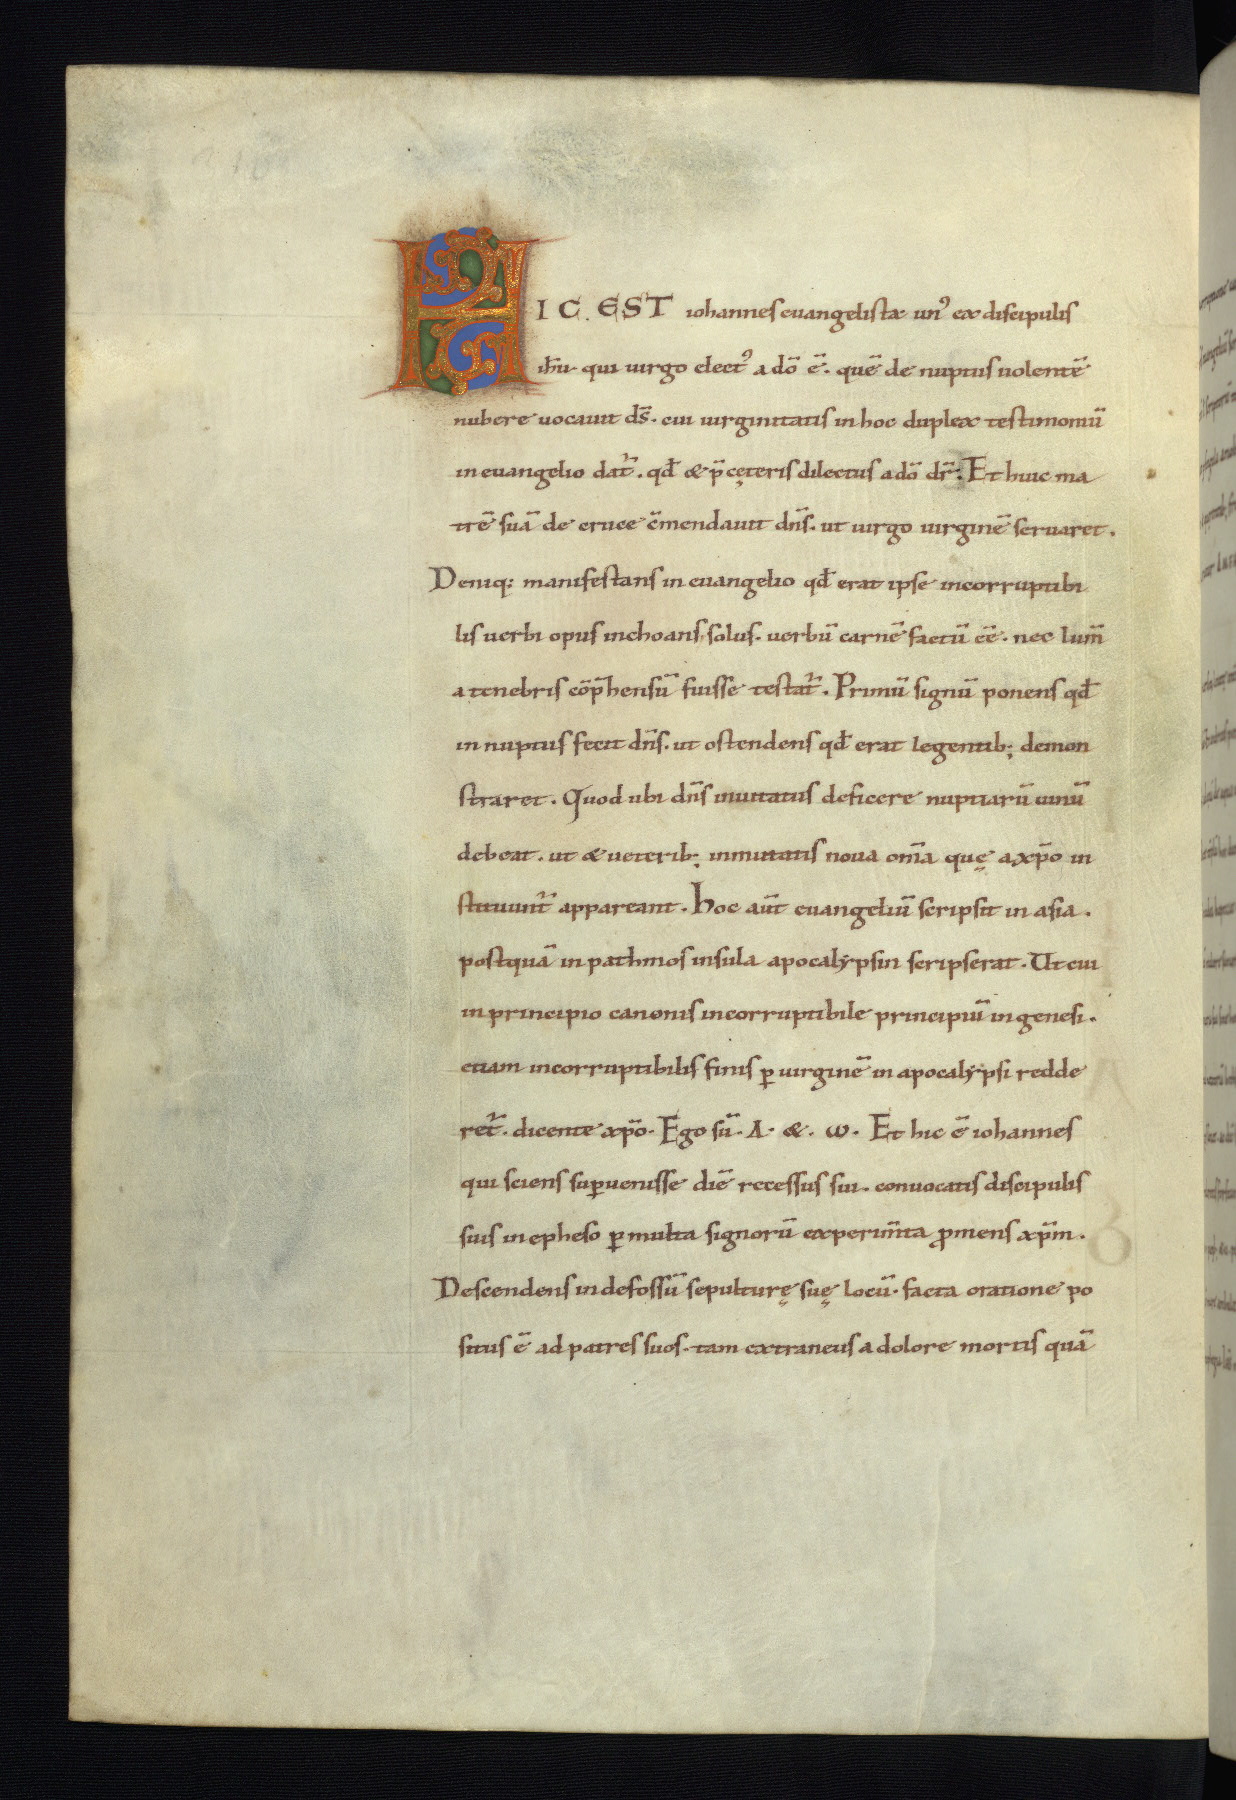 HIC EST iohannes euangelista un᾽ ex discipulis
ihu᷒ qui uirgo elect᾽ a dō ē. quē de nuptiis uolentē
nubere uocauit ds̄. cui uirginitatis in hoc duplex testimoniū
in euangelio dat᷑. qđ & p̄ cęteris dilectus a dō dr̄. Et huic ma
trē suā de cruce c̄mendauit dn̄s. ut uirgo uirginē seruaret.
Deniq; manifestans in euangelio qđ erat ipse incorruptibi
lis uerbi opus inchoans, solus. uerbū carnē factū eē. nec lum̄
a tenebris cōp̄hensū fuisse testat᷑. Primū signū ponens qđ
in nuptiis fecit dn̄s. ut ostendens qđ erat legentib; demon
straret. Quod ubi dn̄s inuitatus deficere nuptiarū uinū
debeat. ut & ueterib; inmutatis noua om̄a quę a xp̄o in
stituunt᷑ appareant. hoc aūt euangeliū scripsit in asia.
postquā in pathmos insula apocalypsin scripserat. Ut cui
in principio canonis incorruptibile principiū in genesi.
etiam incorruptibilis finis ꝑ uirginē in apocalypsi redde
ret᷑. dicente xp̄o. Ego sū. A. &. ω. Et hic ē iohannes
qui sciens suꝑuenisse diē recessus sui. conuocatis discipulis
suis in epheso ꝑ multa signorū experim̄ta ꝓmens xp̄m.
Descendens in defossū sepulturę suę locū. facta oratione po
situs ē ad patres suos. tam extraneus a dolore mortis quā